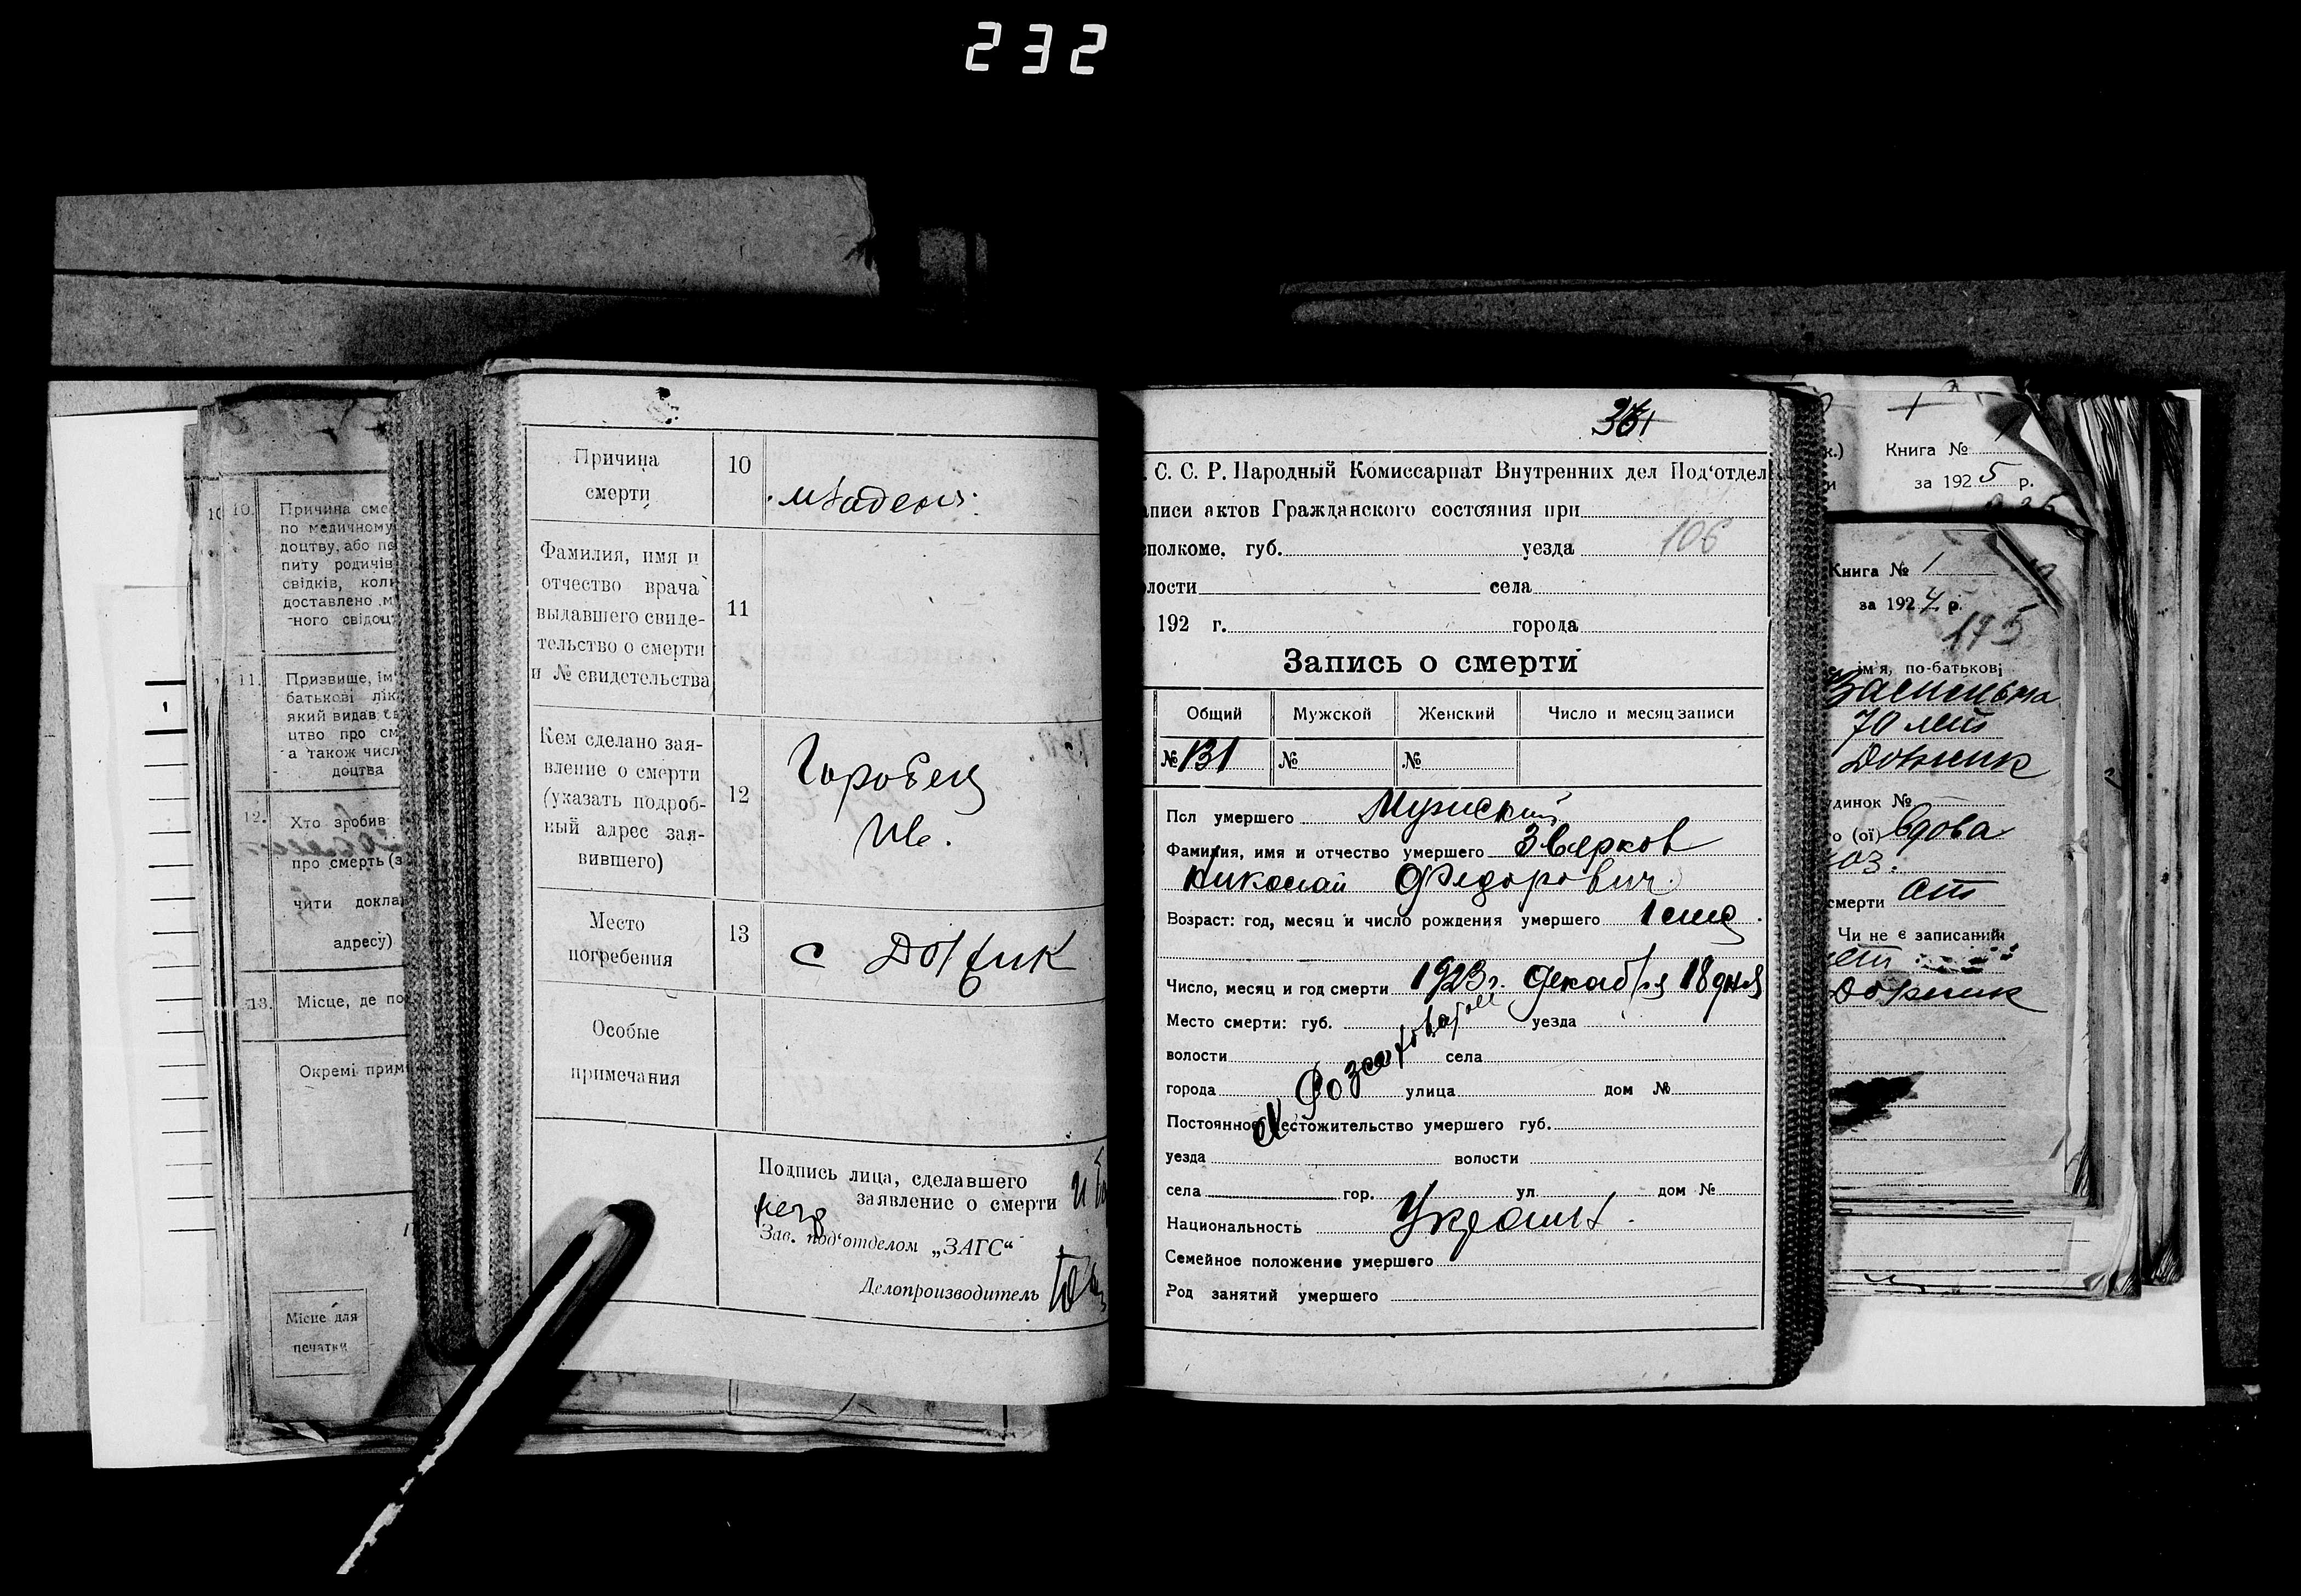 232
10.
Причина сме
по медичному
доцтву, або по
питу родичів
свідків, коли
доставлено м
ного свідоц
11.
Призвище, ім'
батькові лік
який видав св
цтво про см
а також числ
доцтва
12.
Хто зробив
про смерть (з
чити докла
адресу)
13.
Місце, де по
Окремі прим
Місце для
печатки
Причина
смерти
10
младен.
Фамилия, имя и
отчество врача
выдавшего свиде-
тельство о смерти
и № свидетельства
11
Кем сделано зая-
вление о смерти
(указать подроб-
ный адрес зая-
вившего)
12
Горобец
Ив.
Место
погребения
13
с Должик
Особые
примечания
Подпись лица, сделавшего
заявление о смерти
негр
Зав. под'отделом „ЗАГС“
Делопроизводитель
. С. С. Р. Народный Комиссариат Внутренних дел Под'отдел
аписи актов Гражданского состояния при
сполкоме, губ. уезда 106
лости села
192 г. города
Запись о смерти
Общий Мужской Женский Число и месяц записи
№ 131 № №
Пол умершего Мужский
Фамилия, имя и отчество умершего Зверков
Николай Федорович
Возраст: год, месяц и число рождения умершего 1 мец
Число, месяц и год смерти 1923 г. Декабря 18 дня
Место смерти: губ. уезда
волости села
города улица дом №
Постоянное местожительство умершего губ.
уезда волости
села гор. ул. дом №
Национальность Украин.
Семейное положение умершего
Род занятий умершего
к.) Книга № 1
и за 1925 р.
Книга № 1
за 1924 р.
175
е, ім'я, по-батькові
Васильевна
70 лет
Должик
удинок №
го (ої) вдова
смерти
Чи не є записаний
Должик